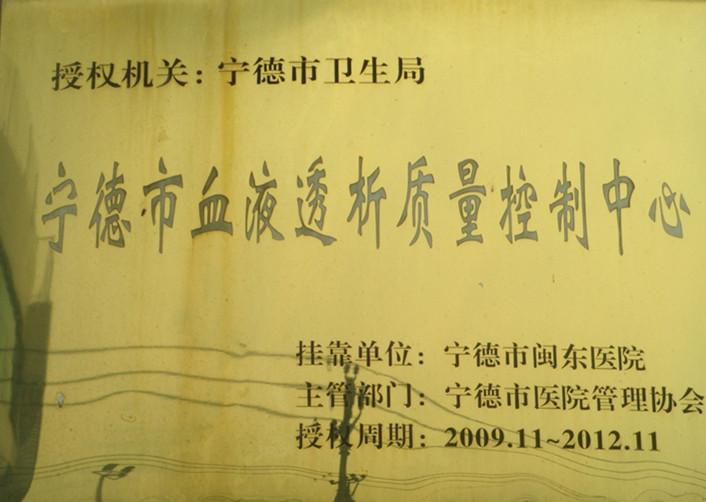 授权机关：宁德市卫生局
宁德市血液透析质量控制中心
挂靠单位：宁德市闽东医院
主管部门：宁德市医院管理协会
授权周期：2009.11~2012.11